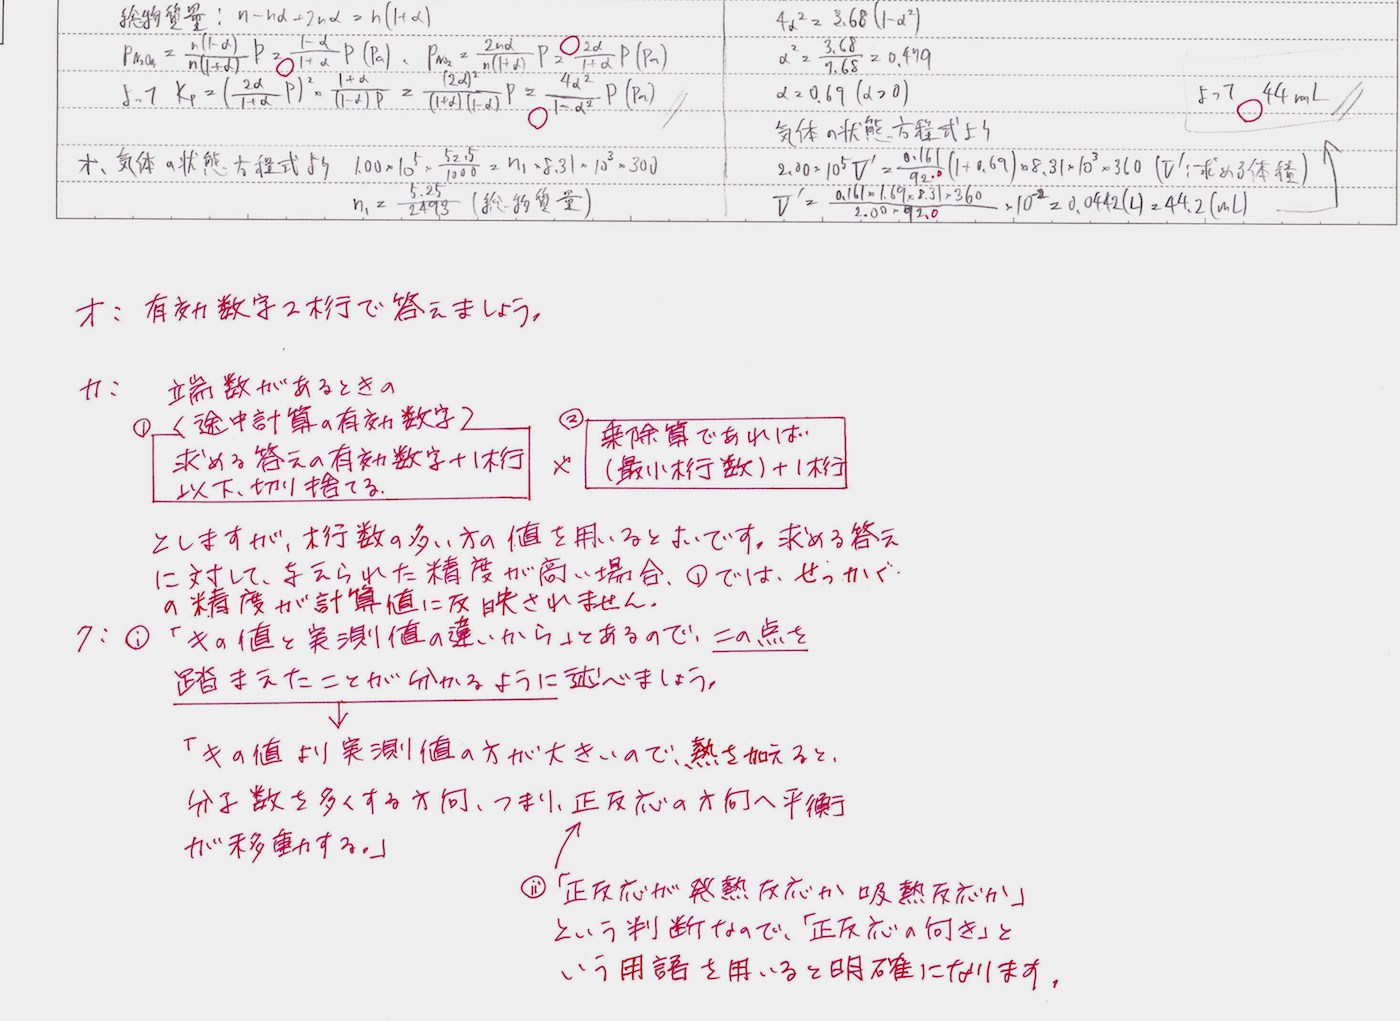 総物質量：n-nα+2nα = n(1+α)
P_N₂O₄ = n(1-α)/n(1+α) P = 1-α/1+α P (Pa)、P_NO₂ = 2nα/n(1+α) P = 2α/1+α P (Pa)
よって Kp = (2α/1+α P)² × 1+α/(1-α)P = (2α)²/(1+α)(1-α) P = 4α²/1-α² P (Pa)
オ、気体の状態方程式より 1.00×10⁵×52.5/1000 = n₁×8.31×10³×300
n₁ = 5.25/2493 (総物質量)
4α² = 3.68(1-α²)
α² = 3.68/7.68 = 0.479
α = 0.69 (α>0)
気体の状態方程式より
2.00×10⁵V' = 0.161/92.0 (1+0.69)×8.31×10³×360 (V':求める体積)
V' = 0.161×1.69×8.31×360/2.00×92.0 ×10⁻² = 0.0442(L) = 44.2(mL)
よって 44mL
オ：有効数字2桁で答えましょう。
カ：端数があるときの
① 〈途中計算の有効数字〉
求める答えの有効数字+1桁
以下、切り捨てる。
② 乗除算であれば
(最小桁数)+1桁
としますが、桁数の多い方の値を用いるとよいです。求める答え
に対して、与えられた精度が高い場合、①では、せっかく
の精度が計算値に反映されません。
ク：ⓘ「キの値と実測値の違いから」とあるので、この点を
踏まえたことが分かるように述べましょう。
「キの値より実測値の方が大きいので、熱を加えると、
分子数を多くする方向、つまり、正反応の方向へ平衡
が移動する。」
ⅱ「正反応が発熱反応か吸熱反応か」
という判断なので、「正反応の向き」と
いう用語を用いると明確になります。